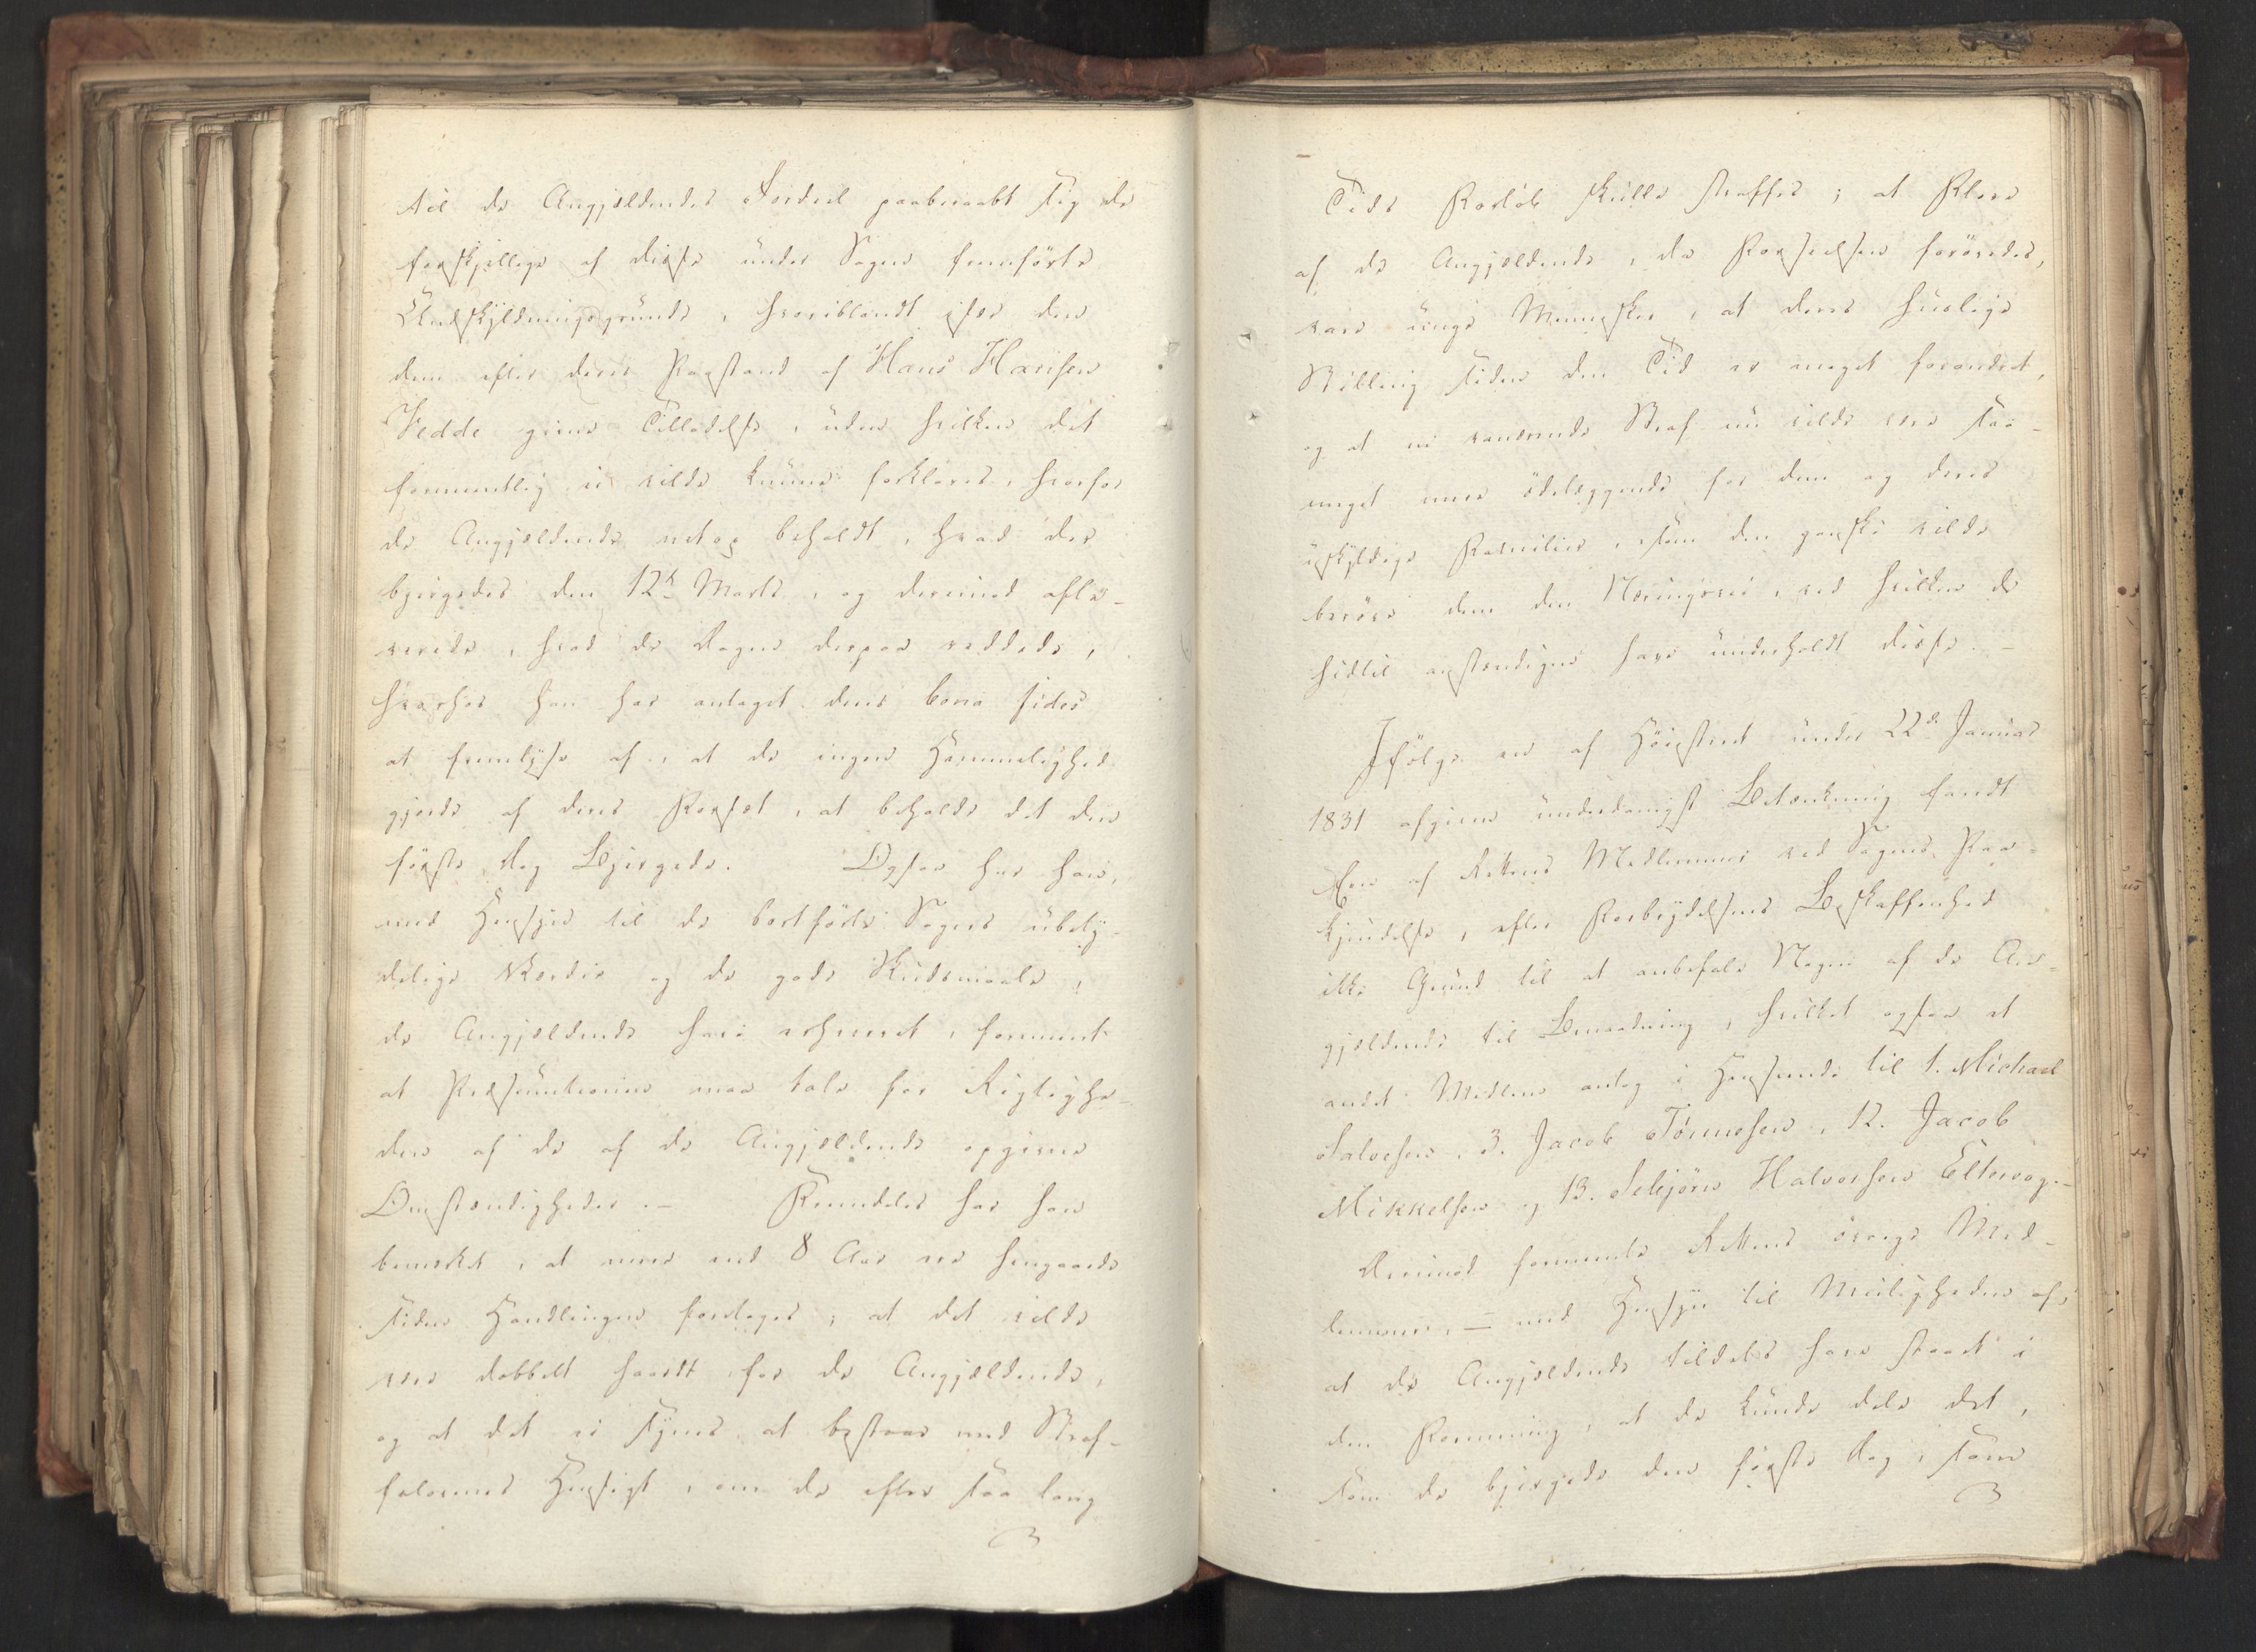 til de Angjældendes Fordeel paaberaabt sig de
forskjellige af disse under Sagen fremførte
Undskyldningsgrunde, hvoriblandt især den
dem efter deres Paastand af Hans Hansen
Vedde givne Tilladelse, uden hvilken det
formeentlig ei vilde kunne forklares, hvorfor
de Angjældende netop beholdt, hvad der
bjergedes den 12te Marts, og derimod afle-
verede, hvad de Dagen derpaa reddede,
hvorhos han har antaget deres bona fides
at fremlyse af, at de ingen Hemmelighed
gjorde af deres Forsæt, at beholde det den
første Dag Bjergede. Ogsaa har han,
med Hensyn til de bortførte Sagers ubety-
delige Værdie og de gode Skudsmaale,
de Angjældende have erhvervet, formeent
at Præsumtionen maa tale for Rigtighe-
den af de af de Angjældende opgivne
Omstændigheder. – Fremdeles har han
bemærket, at mere end 8 Aar ere hengaaede
siden Handlingen foretoges; at det vilde
være dobbelt haardt for de Angjældende,
og at det ei synes at bestaae med Straf-
felovenes Hensigt, om de efter saa lang
Tids Forløb skulle straffes; at Flere
af de Angjældende, da Forseelsen forøvedes,
vare unge Mennesker, at deres huuslige
Stilling siden den Tid er meget forandret,
og at en vanærende Straf nu vilde være saa
meget mere ødelæggende for dem og deres
uskyldige Familier, som den ganske vilde
berøve dem den Næringsvei, ved hvilken de
hidtil anstændigen have underholdt disse. –
Ifølge en af Høiesteret under 22de Januar
1831 afgiven underdanigst Betænkning fandt
Een af Rettens Medlemmer ved Sagens Paa-
kjendelse, efter Forbrydelsens Beskaffenhed
ikke Grund til at anbefale Nogen af de An-
gjældende til Benaadning, hvilket ogsaa et
andet Medlem antog i Henseende til 1. Michael
Salvesen, 3. Jacob Tønnesen, 12. Jacob
Mikkelsen og 13. Sebjørn Halvorsen Eltervog. –
Derimod formeente Rettens øvrige Med-
lemmer, – med Hensyn til Mueligheden af,
at de Angjældende tildeels have staaet i
den Formening, at de kunde dele det,
som de bjergede den første Dag, som